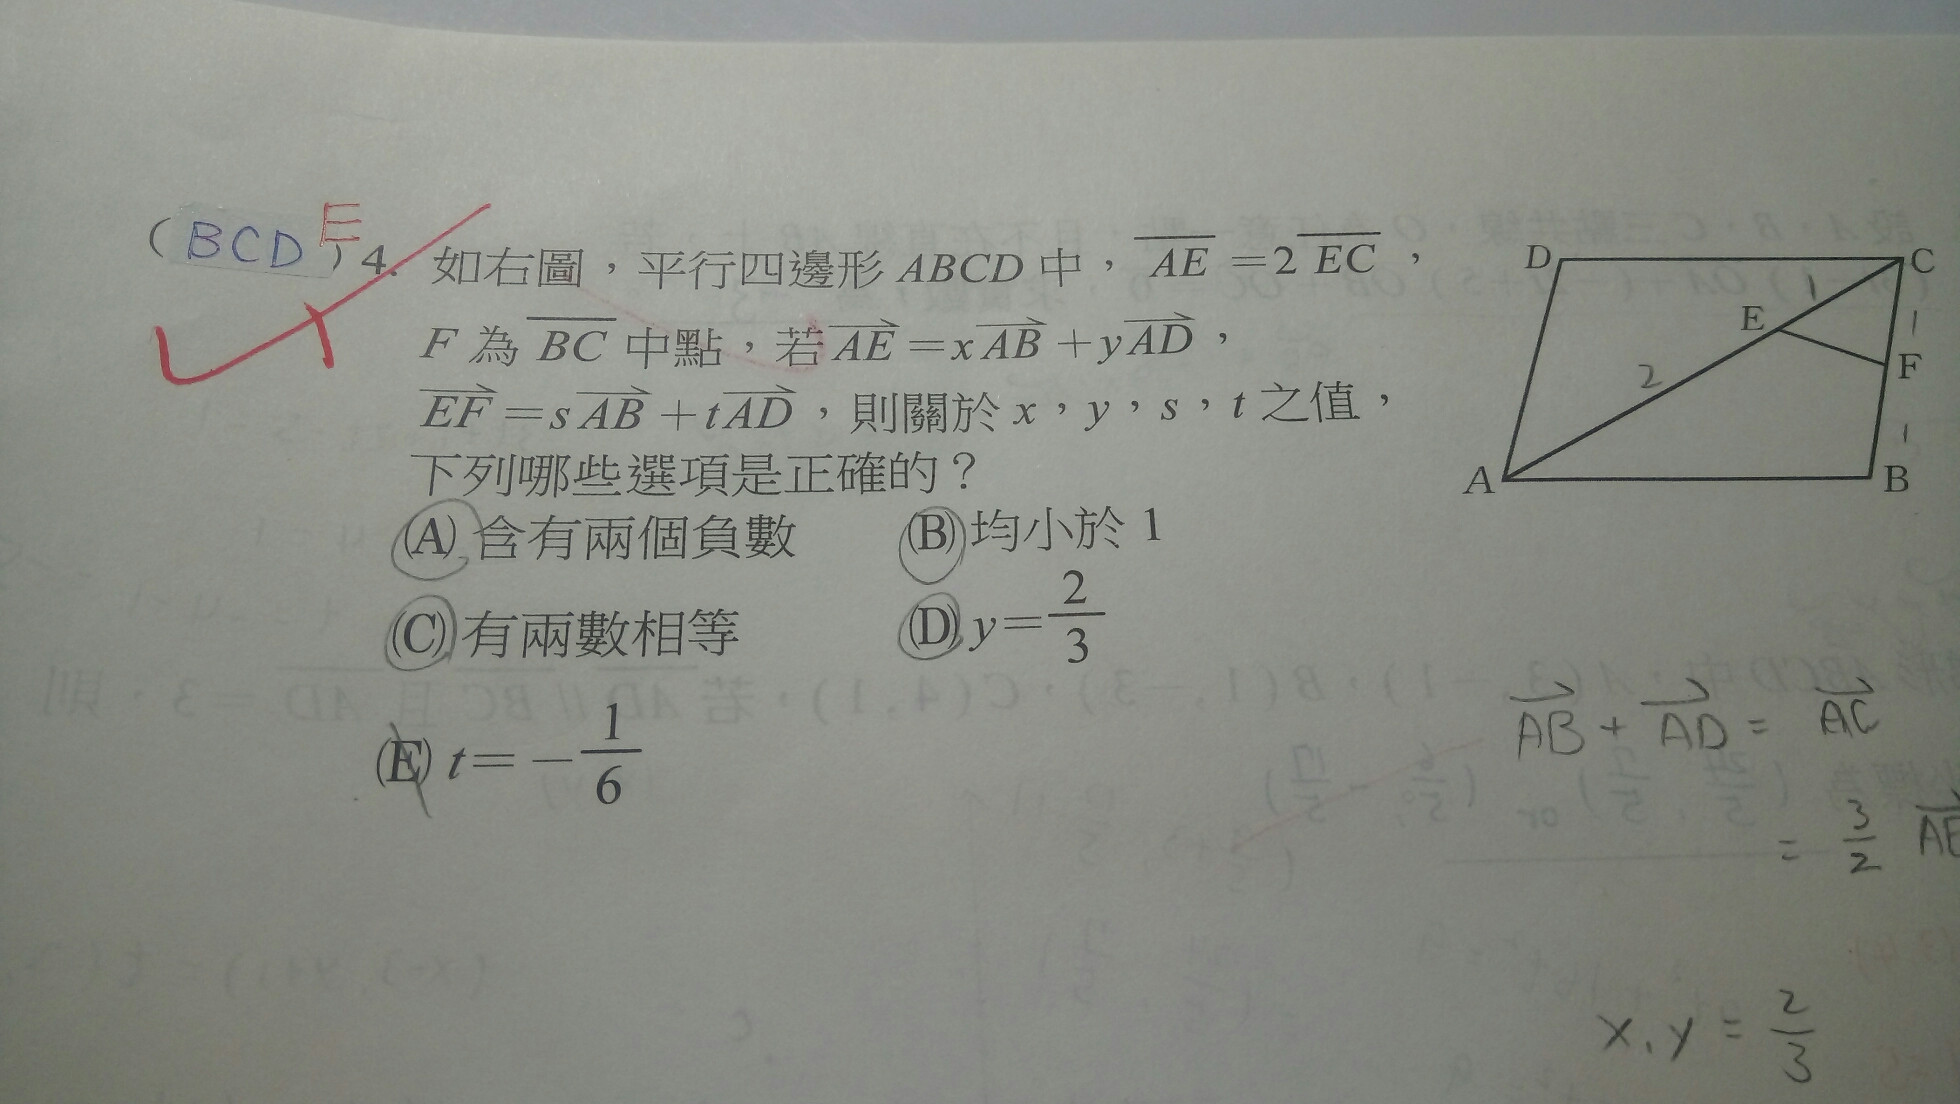 (BCD E)4. 如右圖，平行四邊形 ABCD 中， AE =2 EC ，
F 為 BC 中點，若 AE =x AB +y AD ，
EF =s AB +t AD ，則關於 x，y，s，t 之值，
下列哪些選項是正確的？
(A) 含有兩個負數 (B) 均小於 1
(C) 有兩數相等 (D) y= 2/3
(E) t= − 1/6
D C
1
E 1
F
2
1
A B
AB + AD = AC
= 3/2 AE
x, y = 2/3